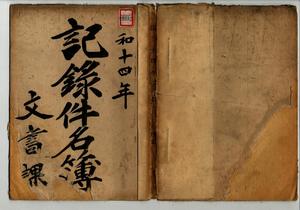 和十四年
記録件名簿
文書課